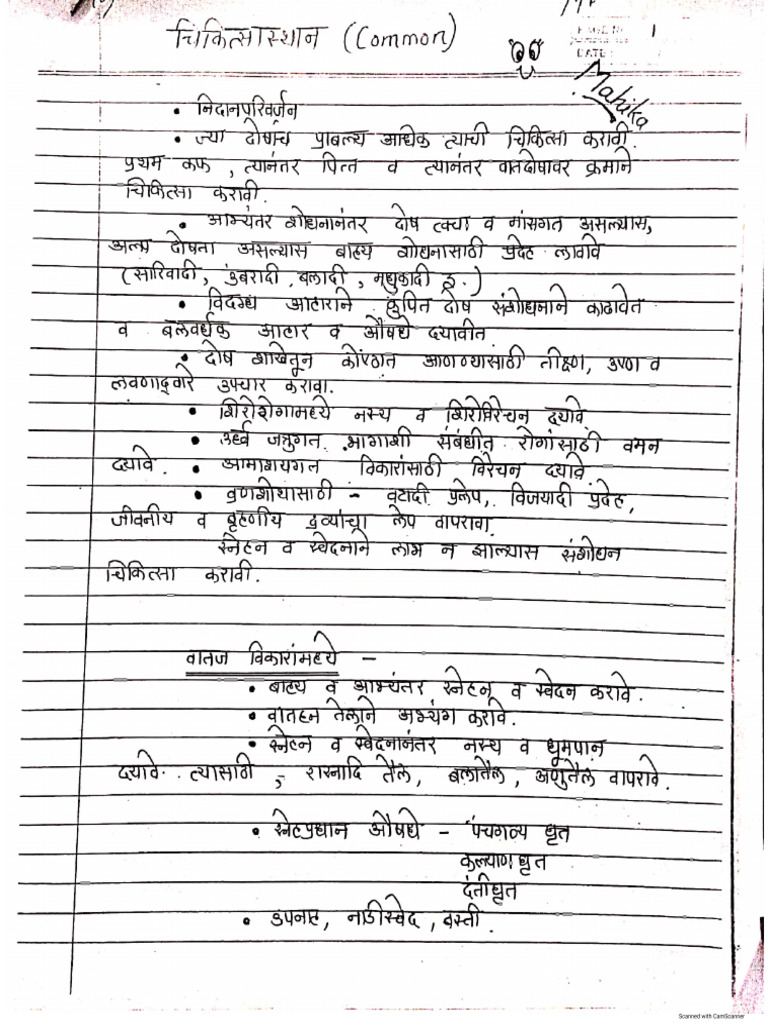 चिकित्सास्थान (Common)
PAGE NO. 1
DATE:
Mahika
• निदानपरिवर्जन
• ज्या दोषांच प्राबल्य अधिक त्याची चिकित्सा करावी.
प्रथम कफ, त्यानंतर पित्त व त्यानंतर वातदोषावर क्रमाने
चिकित्सा करावी.
• आभ्यंतर शोधनानंतर दोष त्वचा व मांसगत असल्यास,
अल्प दोषना असल्यास बाह्य शोधनासाठी प्रदेह लावावे
(सारिवादी, उंबरादी, बलादी, मधुकादी इ.)
• विदग्ध आहाराने कुपित दोष संशोधनाने काढावेत
व बलवर्धक आहार व औषधे दयावीत.
• दोष शाखेतून कोष्ठात आणण्यासाठी तीक्ष्ण, उष्ण व
लवणाद्वारे उपचार करावा.
• शिरोरोगामध्ये नस्य व शिरोविरेचन दयावे
• उर्ध्व जत्रुगत भागाशी संबंधीत रोगांसाठी वमन
दयावे. • आमाशयगत विकारांसाठी विरेचन दयावे
• व्रणशोथासाठी - वटादी प्रलेप, विजयादी प्रदेह,
जीवनीय व बृहणीय द्रव्यांचा लेप वापरावा.
स्नेहन व स्वेदनाने लाभ न झाल्यास संशोधन
चिकित्सा करावी.
वातज विकारांमध्ये -
• बाह्य व आभ्यंतर स्नेहन व स्वेदन करावे.
• वातहन तेलाने अभ्यंग करावे.
• स्नेहन व स्वेदनानंतर नस्य व धूमपान
दयावे. त्यासाठी - रास्नादि तैल, बलातैल, अणुतैल वापरावे.
• स्नेहप्रधान औषधे - पंचगव्य घृत
कल्याण घृत
दंतीघृत
• उपनाह, नाडीस्वेद, वस्ती.
Scanned with CamScanner